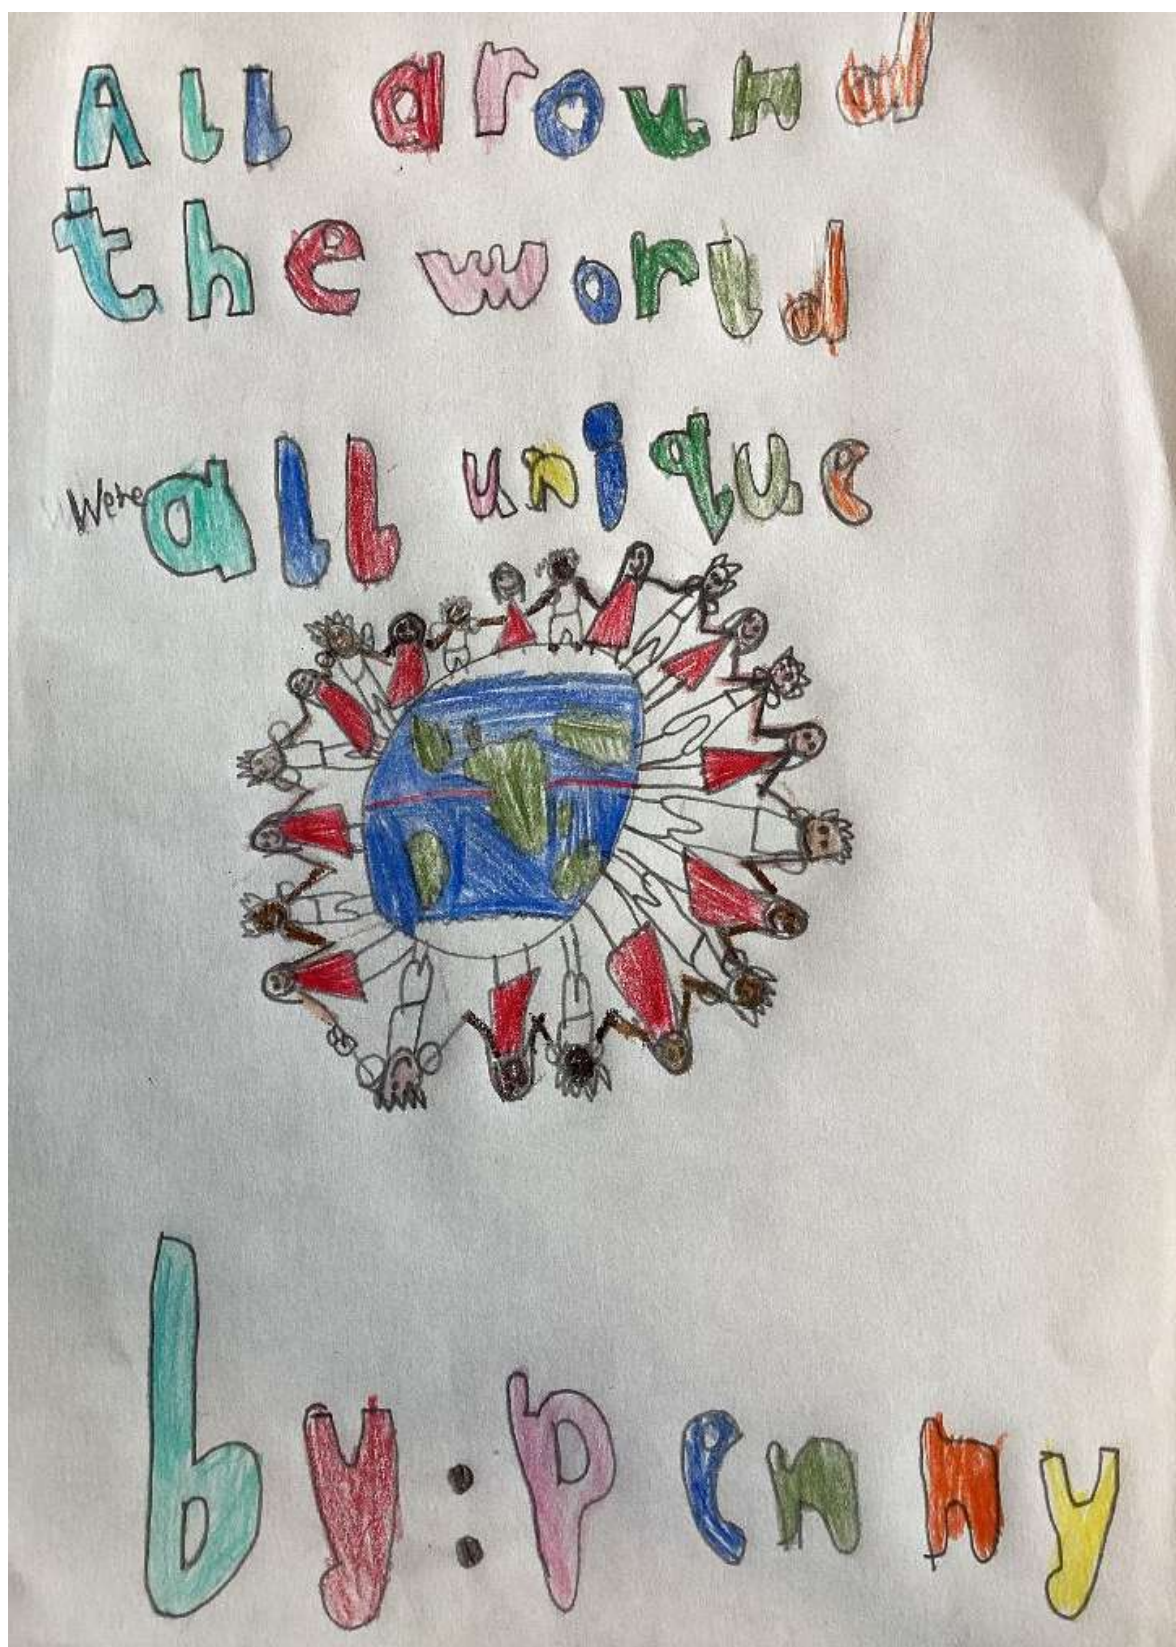 All around
the world
We're all unique
by: penny